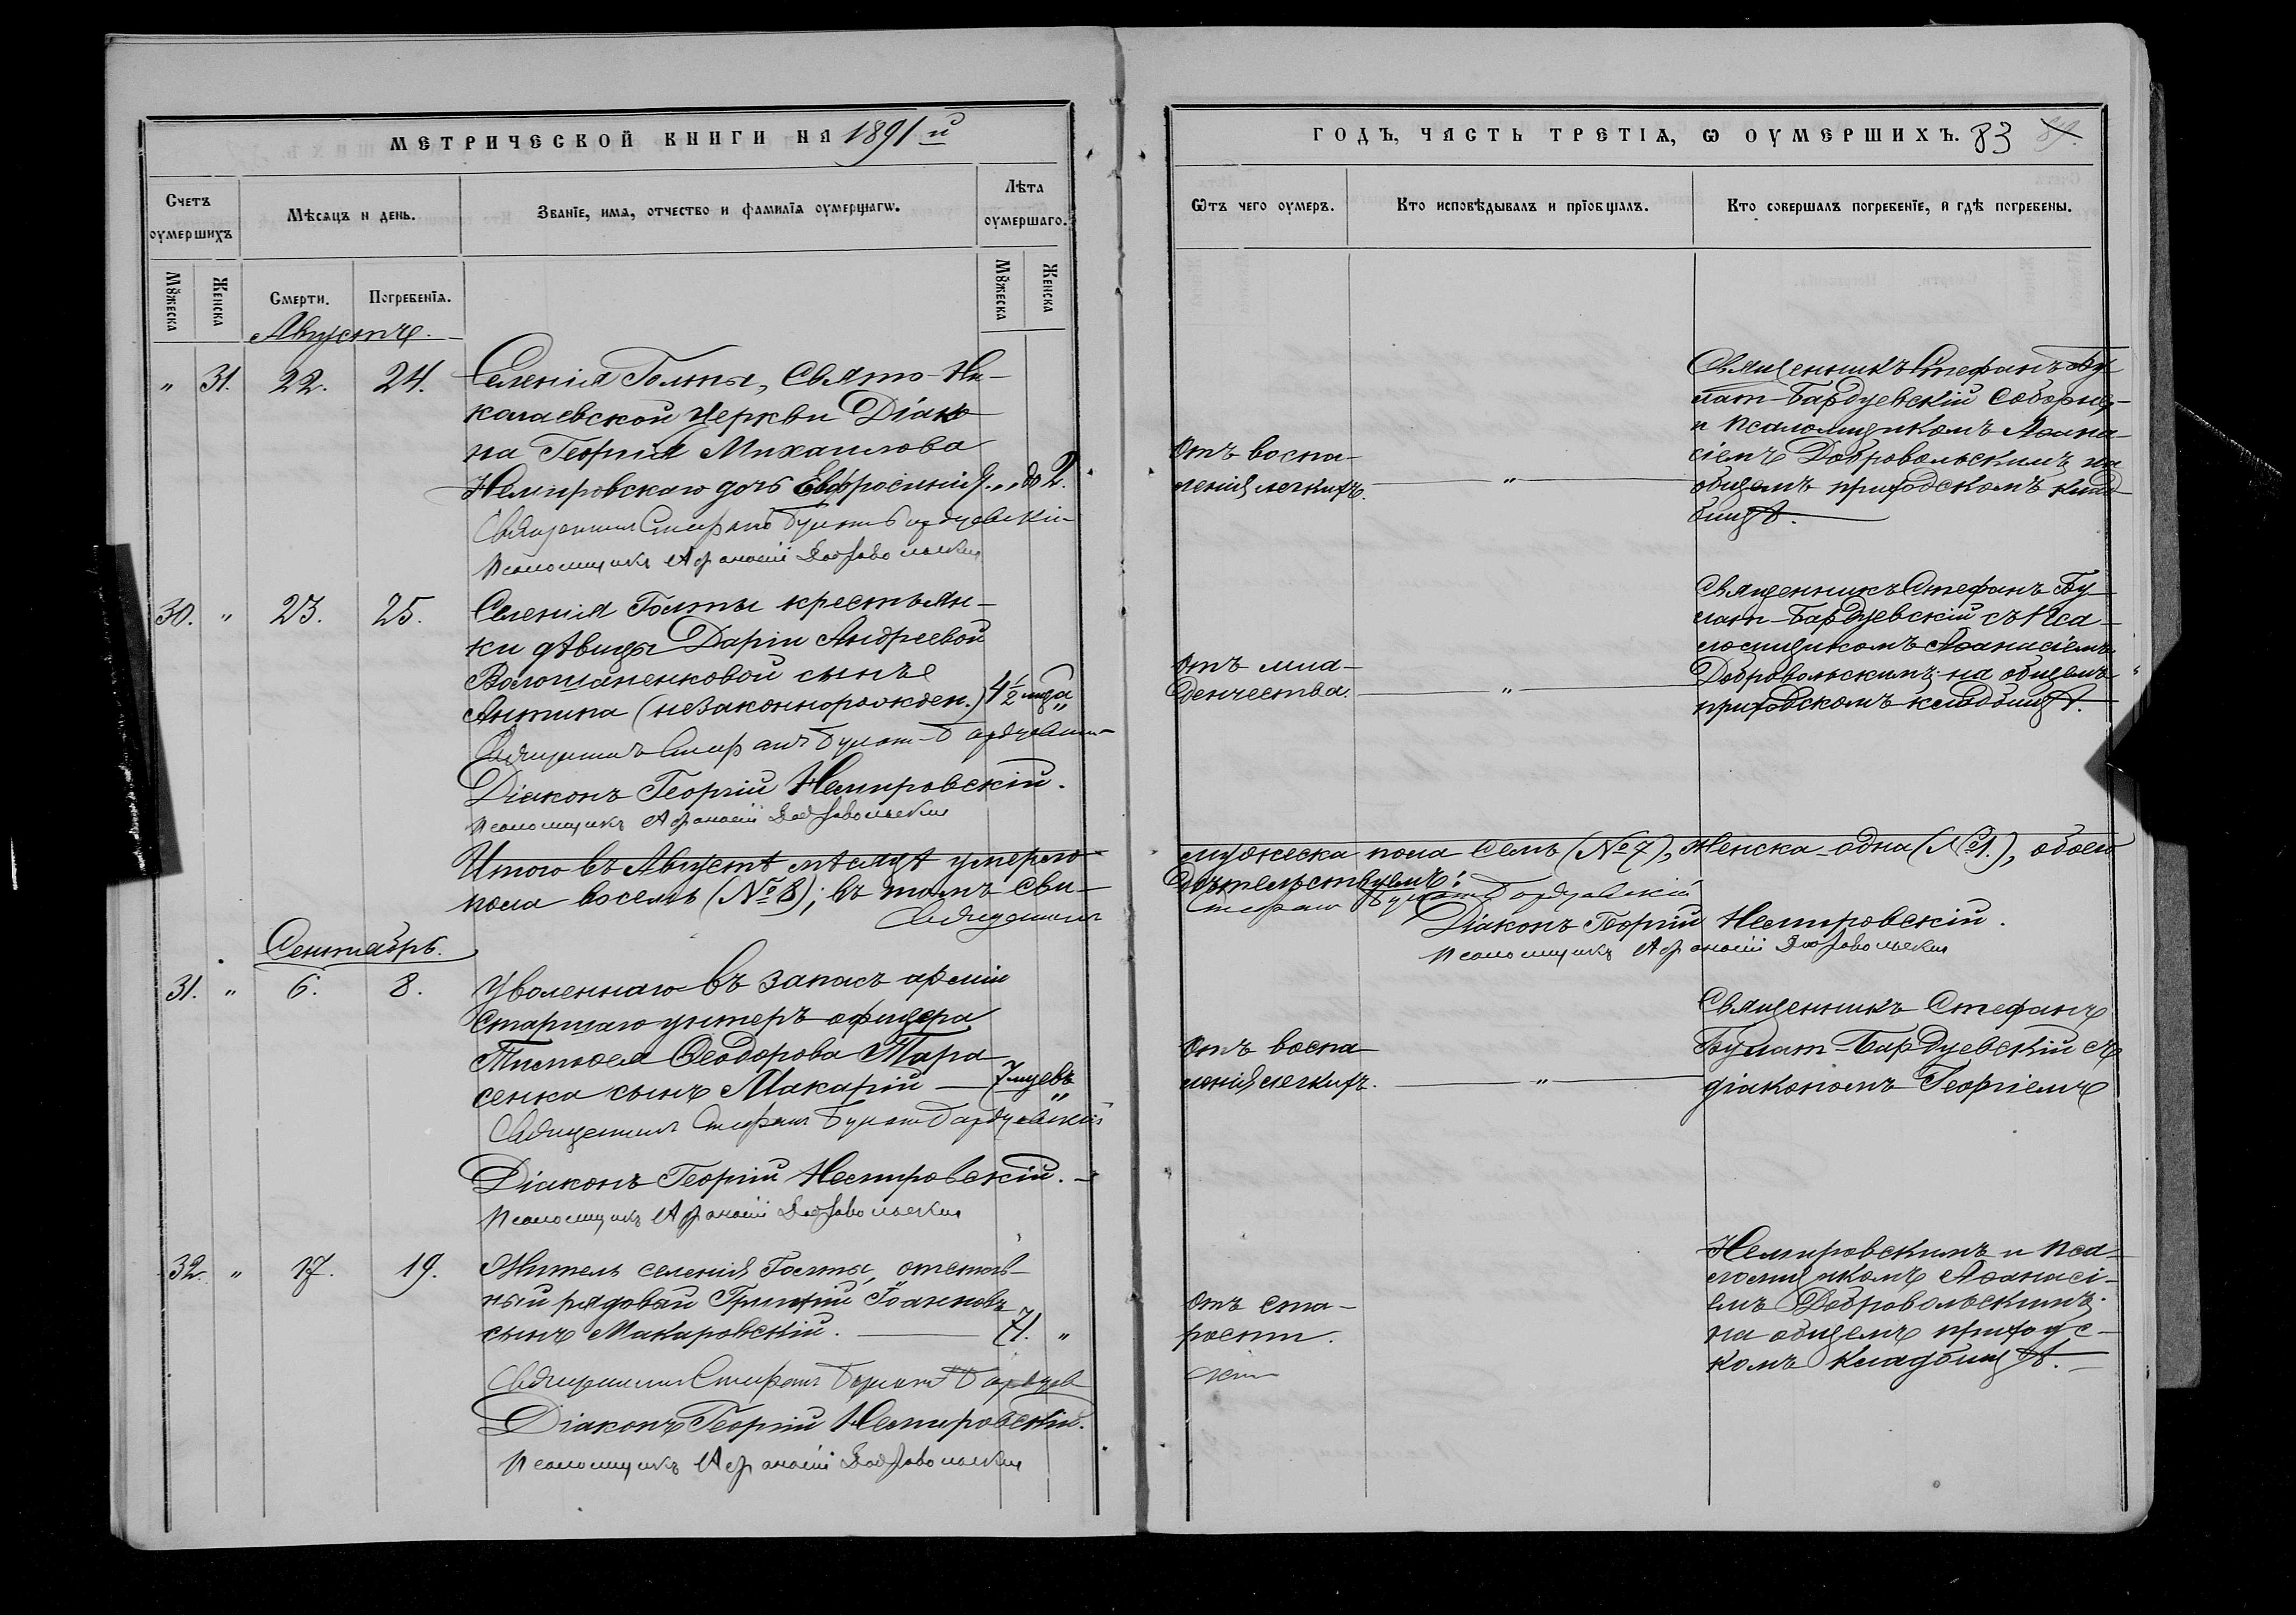 МЕТРИЧЕСКОЙ КНИГИ НА 1891й
Счетъ оумершихъ
Мѣсяцъ и день.
Званїе, имѧ, отчество и фамилїѧ оумершагѡ.
Лѣта оумершаго.
Мꙋжеска
Женска
Смерти.
Погребенїѧ.
Мꙋжеска
Женска
Августъ.
" 31. 22. 24.
Селенія Голты, Свято-Ни-
колаевской церкви Діако
на Георгія Михаилова
Немировскаго дочь Евфросинія. " до 2.
Священникъ Стефанъ Булат-Бардуевскій
Псаломщикъ Афанасій Добровольскій
30. " 23. 25.
Селенія Голты крестьян-
ки дѣвицы Даріи Андреевой
Волошаненковой сынъ
Антипа (незаконнорожден.) 4½ мцда "
Священникъ Стефанъ Булат-Бардуевскій
Діаконъ Георгій Немировскій.
Псаломщикъ Афанасій Добровольскій
Итого въ Августѣ мѣсяцѣ умерло
пола восемь (№ 8); въ томъ сви-
Священникъ
Сентябрь.
31. " 6. 8.
Уволеннаго въ запасъ арміи
старшаго унтеръ-офицера
Тимофея Ѳеодорова Тара
сенка сынъ Макарій — 7 мцевъ "
Священникъ Стефанъ Булат-Бардуевскій
Діаконъ Георгій Немировскій.
Псаломщикъ Афанасій Добровольскій
32. " 17. 19.
Житель селенія Голты, отстав-
ный рядовый Григорій Іоанновъ
сынъ Макаровскій. — 71. "
Священникъ Стефанъ Булат-Бардуев
Діаконъ Георгій Немировскій.
Псаломщикъ Афанасій Добровольскій
ГОДЪ, ЧАСТЬ ТРЕТІѦ, Ѡ ОУМЕРШИХЪ. 83
Ѿтъ чего оумеръ.
Кто исповѣдывалъ и прїобщалъ.
Кто совершалъ погребенїе, и гдѣ погребены.
Отъ воспа-
ленія легкихъ. "
Священникъ Стефанъ Бу-
лат-Бардуевскій соборнѣ
и псаломщикомъ Аѳана-
сіемъ Добровольскимъ на
общемъ приходскомъ клад-
бищѣ.
Отъ мла-
денчества. "
Священникъ Стефанъ Бу-
лат-Бардуевскій съ Пса-
ломщикомъ Аѳанасіемъ
Добровольскимъ на общемъ
приходскомъ кладбищѣ.
мужеска пола семь (№ 7), женска-одна (№ 1.), обоего
дѣтельствуемъ:
Стефанъ Булат-Бардуевскій
Діаконъ Георгій Немировскій.
Псаломщикъ Афанасій Добровольскій
Отъ воспа-
ленія легкихъ. "
Священникъ Стефанъ
Булат-Бардуевскій съ
діакономъ Георгіемъ
Отъ ста-
рости.
Немировскимъ и пса-
ломщикомъ Аѳанасі-
емъ Добровольскимъ
на общемъ приходс-
комъ кладбищѣ.